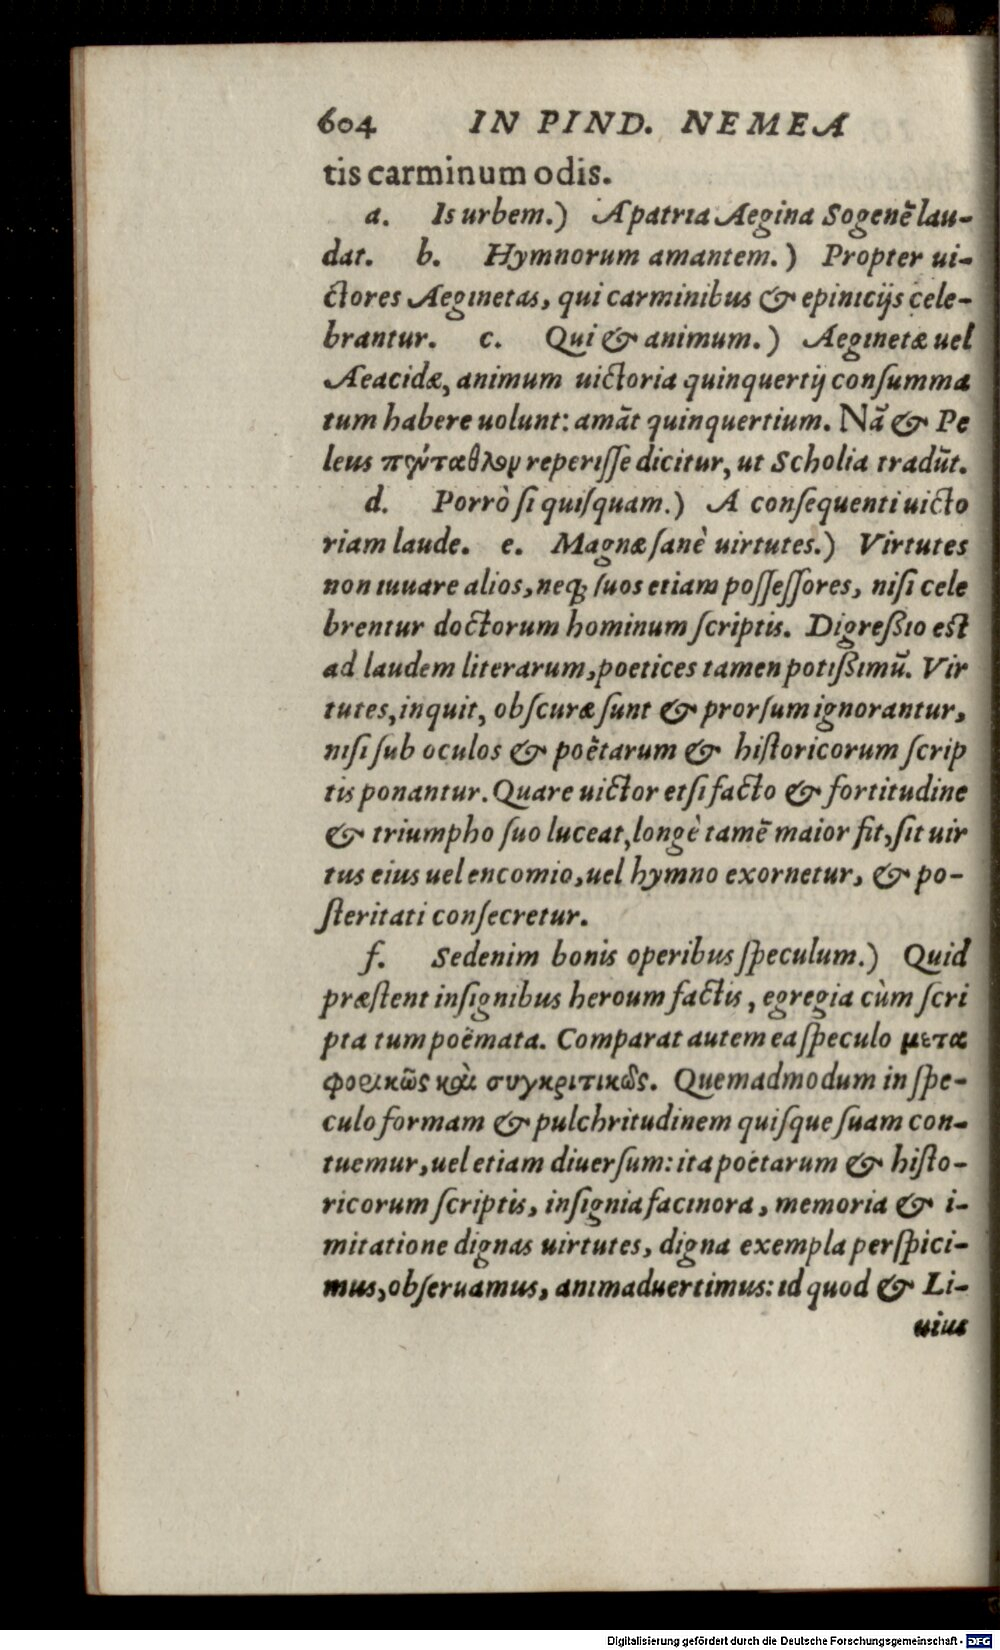 604 IN PIND. NEMEA
tis carminum odis.
a. Is urbem.) A patria Aegina Sogenẽ lau-
dat. b. Hymnorum amantem.) Propter ui-
ctores Aeginetas, qui carminibus & epinicijs cele-
brantur. c. Qui & animum.) Aeginetæ uel
Aeacidæ, animum uictoria quinquertij conſumma
tum habere uolunt: amãt quinquertium. Nã & Pe
leus πένταθλον reperiſſe dicitur, ut Scholia tradũt.
d. Porrò ſi quiſquam.) A conſequenti uicto
riam laude. e. Magnæ ſanè uirtutes.) Virtutes
non iuuare alios, neq; ſuos etiam poſſeſſores, niſi cele
brentur doctorum hominum ſcriptis. Digreßio eſt
ad laudem literarum, poetices tamen potißimũ. Vir
tutes, inquit, obſcuræ ſunt & prorſum ignorantur,
niſi ſub oculos & poëtarum & hiſtoricorum ſcrip
tis ponantur. Quare uictor etſi facto & fortitudine
& triumpho ſuo luceat, longè tamẽ maior fit, ſit uir
tus eius uel encomio, uel hymno exornetur, & po-
ſteritati conſecretur.
f. Sedenim bonis operibus ſpeculum.) Quid
præſtent inſignibus heroum factis, egregia cùm ſcri
pta tum poëmata. Comparat autem ea ſpeculo μετα
φορικῶς καὶ συγκριτικῶς. Quemadmodum in ſpe-
culo formam & pulchritudinem quiſque ſuam con-
tuemur, uel etiam diuerſum: ita poëtarum & hiſto-
ricorum ſcriptis, inſignia facinora, memoria & i-
mitatione dignas uirtutes, digna exempla perſpici-
mus, obſeruamus, animaduertimus: id quod & Li-
uius
Digitalisierung gefördert durch die Deutsche Forschungsgemeinschaft - DFG